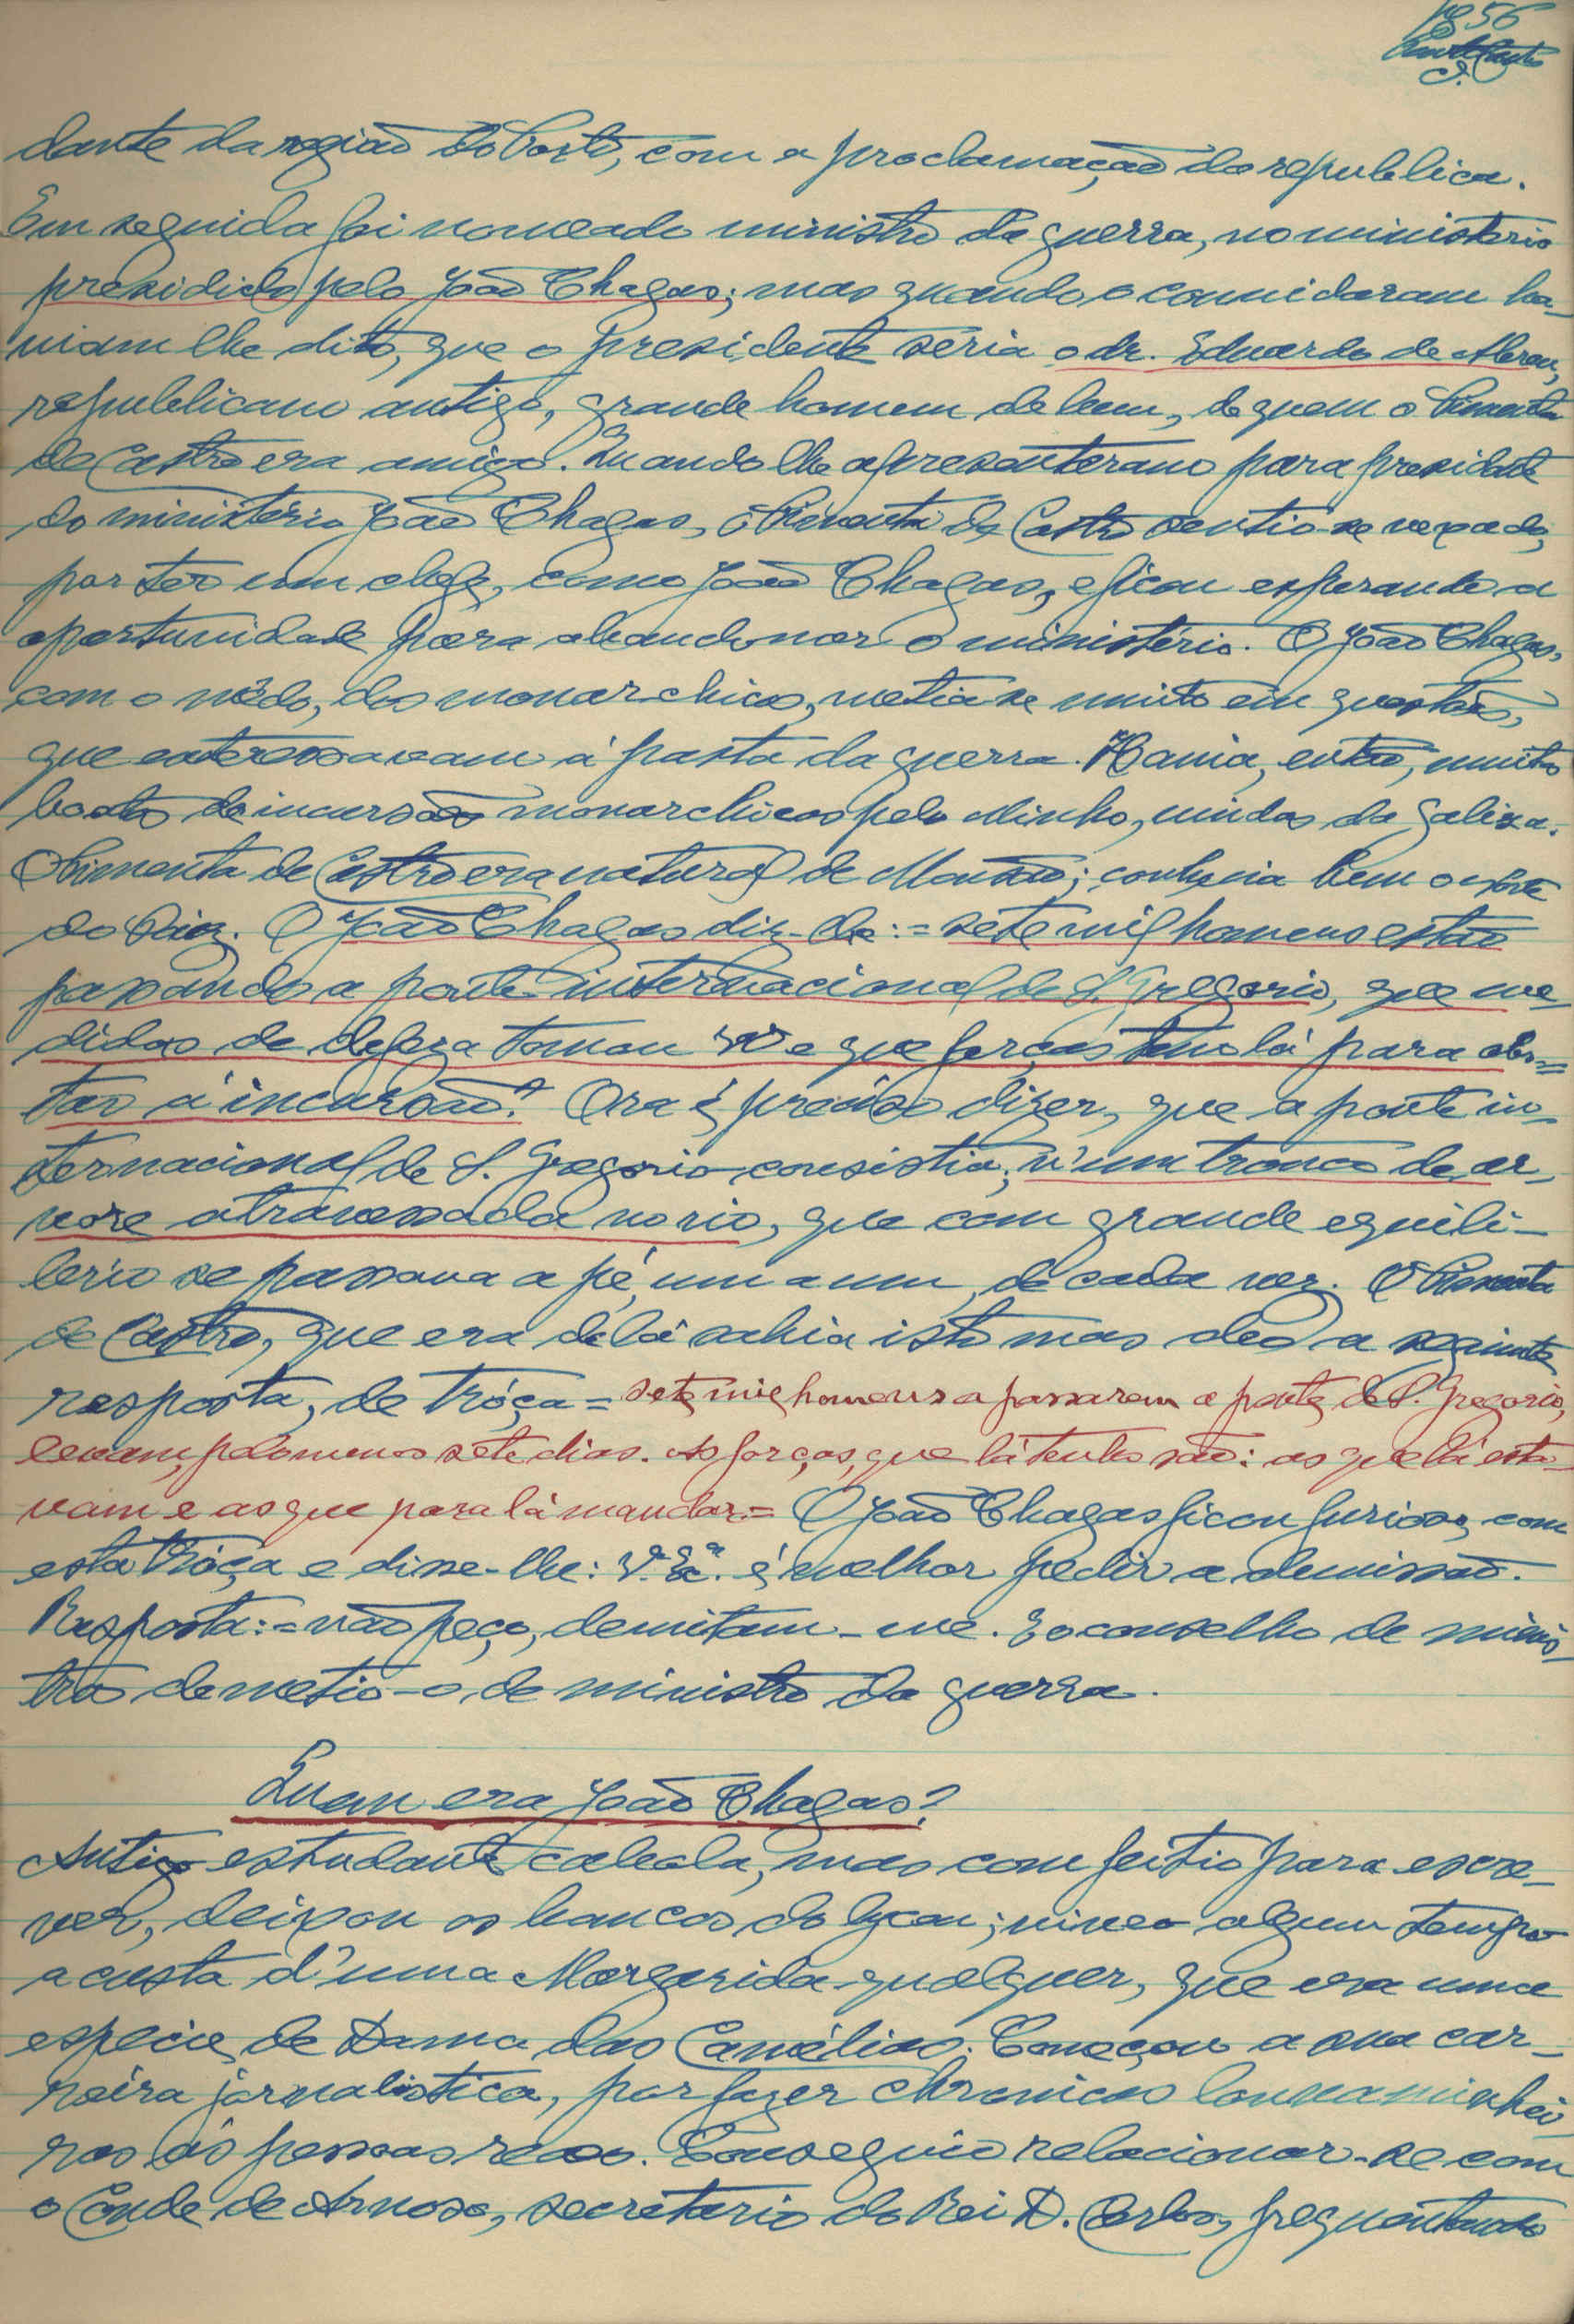 1856
dante da região do Porto, com a proclamação da republica.
Em seguida foi nomeado ministro da guerra, no ministerio
presidido pelo João Chagas; mas quando o convidaram ha-
viam lhe dito, que o presidente seria o dr. Eduardo de Abreu,
republicano antigo, grande homem de bem, de quem o Pimenta
de Castro era amigo. Quando lhe apresentaram para presidente
do ministério João Chagas, o Pimenta de Castro sentio-se vexado,
por ter um chefe, como João Chagas, e ficou esperando a
oportunidade para abandonar o ministério. O João Chagas,
com o mêdo, dos monarchicos, metia-se muito em questões,
que enteressavam á pasta da guerra. Havia, então, muitos
boatos de incursões monarchicas pelo Minho, vindas da Galiza.
O Pimenta de Castro era natural de Monsão; conhecia bem o norte
do Paiz. O João Chagas diz-lhe: = sete mil homens estão
passando a ponte internacional de S. Gregorio, que me-
didas de defeza tomou V. e que forças tem lá para obs-
tar á incursão? Ora é preciso dizer, que a ponte in-
ternacional de S. Gregorio consistia, n'um tronco de ar-
vore atravessada no rio, que com grande equili-
brio se passava a pé, um a um, de cada vez. O Pimenta
de Castro, que era de lá sabia isto mas deo a seguinte
resposta, de tróça = sete mil homens a passarem a ponte de S. Gregorio,
levam, pelo menos sete dias. As forças, que lá tenho são: as que lá esta-
vam e as que para lá mandar = O João Chagas ficou furioso, com
esta tróça e disse-lhe: V. Exª. é melhor pedir a demissão.
Resposta: = não peço, demitam-me. E o conselho de minis-
tros demetio-o de ministro da guerra.
Quem era João Chagas?
Antigo estudante cabula, mas com feitio para escre-
ver, deixou os bancos do lyceu; viveo algum tempo
a custa d'uma Margarida qualquer, que era uma
espécie de Dama das Camélias. Começou a sua car-
reira jornalistica, por fazer chronicas louvaminhei-
ras ás pessoas reaes. Conseguio relacionar-se com
o Conde de Arnoso, secretario do Rei D. Carlos, frequentando